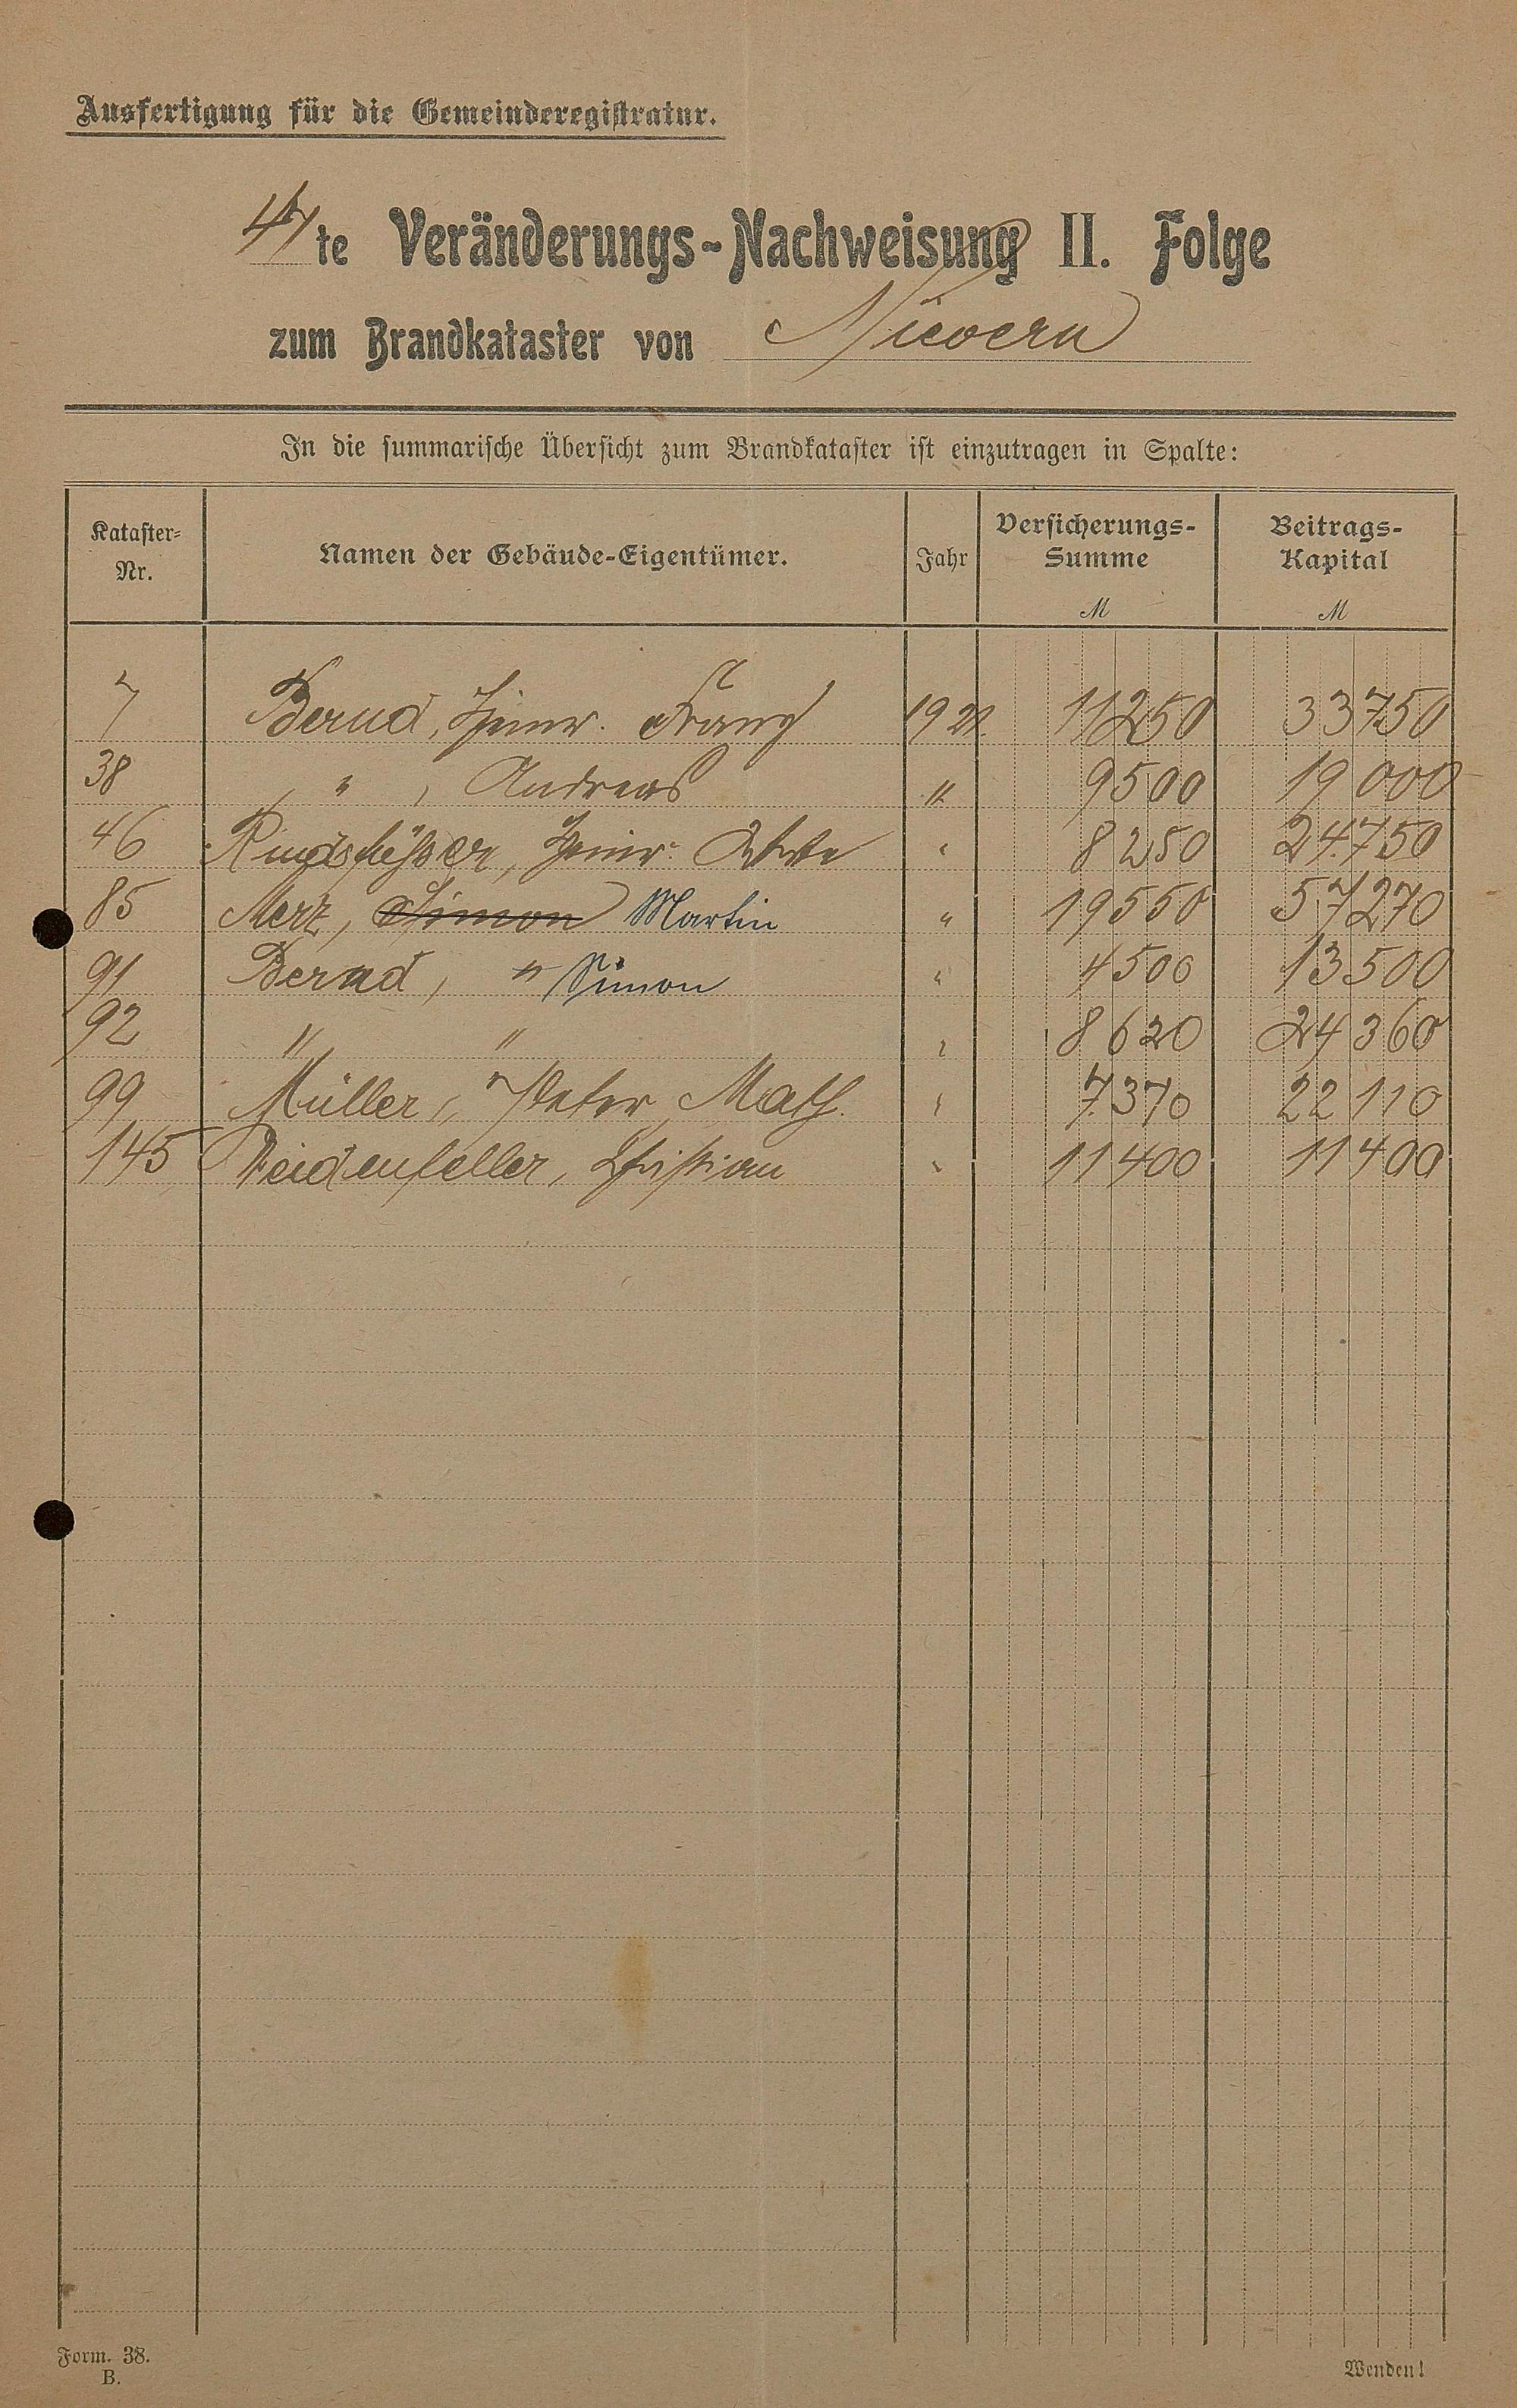 Ausfertigung für die Gemeinderegistratur.
47te Veränderungs-Nachweisung II. Folge
zum Brandkataster von Nievern
In die summarische Übersicht zum Brandkataster ist einzutragen in Spalte:
Kataster-Nr. Namen der Gebäude-Eigentümer. Jahr Versicherungs-Summe M Beitrags-Kapital M
7 Bernd, Heinr. Franz 1921. 11250 33750
38 " , Andreas " 9500 19000
46 Heinr. " 8250 24750
85 Merz, Simon Martin " 19550 57270
91 Bernd, " Simon " 4500 13500
92 " " " 8620 24360
99 Müller, Peter Math. " 7370 22110
145 Weidenfeller, Christian " 11400 11400
Form. 38.
B.
Wenden!